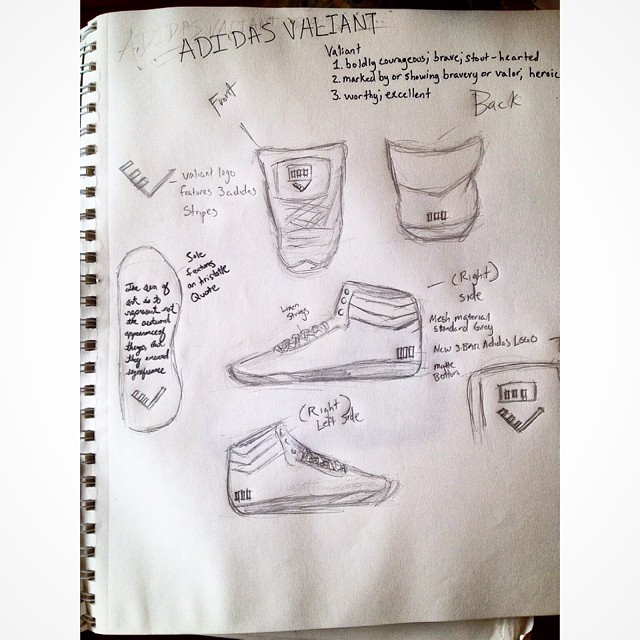 ADIDAS VALIANT
ADIDAS VALIANT
Valiant
1. boldly courageous; brave; stout-hearted
2. marked by or showing bravery or valor; heroic
3. worthy; excellent
Front
Back
valiant logo
features 3 adidas
Stripes
Sole
features
an Aristotle
Quote
The aim of
art is to
represent not
the outward
appearance of
things, but
they inward
significance
Linen
Strings
(Right)
side
Mesh material
standard Grey
New 3 BAR Adidas LOGO
matte
Bottom
(Right)
Left side